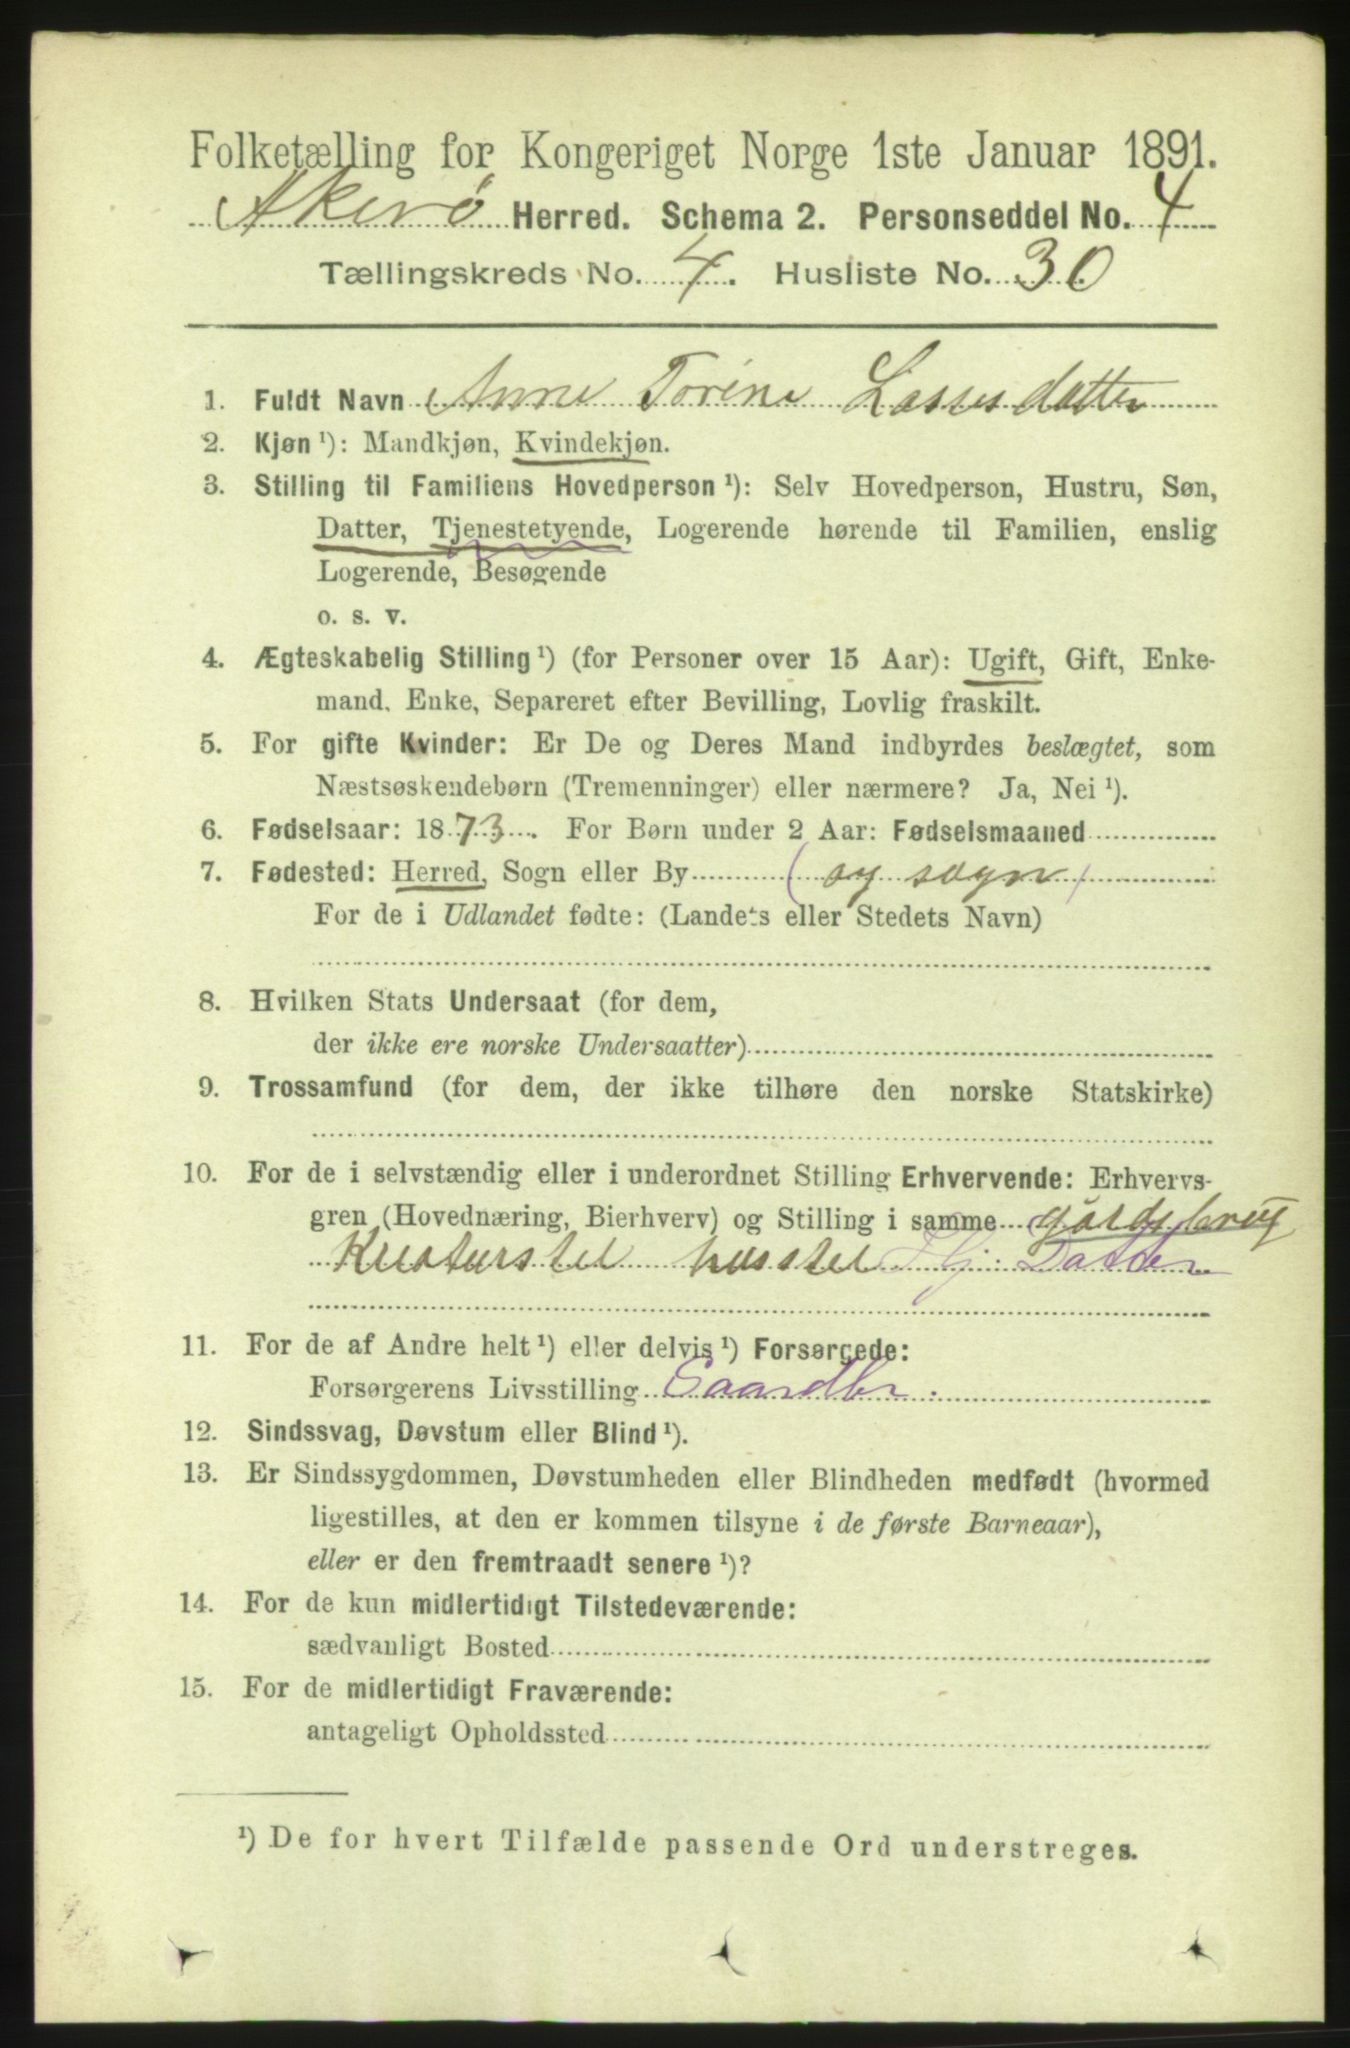 Folketælling for Kongeriget Norge 1ste Januar 1891.
Akerø Herred. Schema 2. Personseddel No. 4
Tællingskreds No. 4. Husliste No. 30
1. Fuldt Navn Anne Torine Lassesdatter
2. Kjøn ¹): Mandkjøn, Kvindekjøn.
3. Stilling til Familiens Hovedperson ¹): Selv Hovedperson, Hustru, Søn,
Datter, Tjenestetyende, Logerende hørende til Familien, enslig
Logerende, Besøgende
o. s. v.
4. Ægteskabelig Stilling ¹) (for Personer over 15 Aar): Ugift, Gift, Enke-
mand, Enke, Separeret efter Bevilling, Lovlig fraskilt.
5. For gifte Kvinder: Er De og Deres Mand indbyrdes beslægtet, som
Næstsøskendebørn (Tremenninger) eller nærmere? Ja, Nei ¹).
6. Fødselsaar: 1873. For Børn under 2 Aar: Fødselsmaaned
7. Fødested: Herred, Sogn eller By (og sogn)
For de i Udlandet fødte: (Landets eller Stedets Navn)
8. Hvilken Stats Undersaat (for dem,
der ikke ere norske Undersaatter)
9. Trossamfund (for dem, der ikke tilhøre den norske Statskirke)
10. For de i selvstændig eller i underordnet Stilling Erhvervende: Erhvervs-
gren (Hovednæring, Bierhverv) og Stilling i samme gårdsbrug
Kreaturstel husstel Hj. Datter
11. For de af Andre helt ¹) eller delvis ¹) Forsørgede:
Forsørgerens Livsstilling Gaardbr.
12. Sindssvag, Døvstum eller Blind ¹).
13. Er Sindssygdommen, Døvstumheden eller Blindheden medfødt (hvormed
ligestilles, at den er kommen tilsyne i de første Barneaar),
eller er den fremtraadt senere ¹)?
14. For de kun midlertidigt Tilstedeværende:
sædvanligt Bosted
15. For de midlertidigt Fraværende:
antageligt Opholdssted
¹) De for hvert Tilfælde passende Ord understreges.